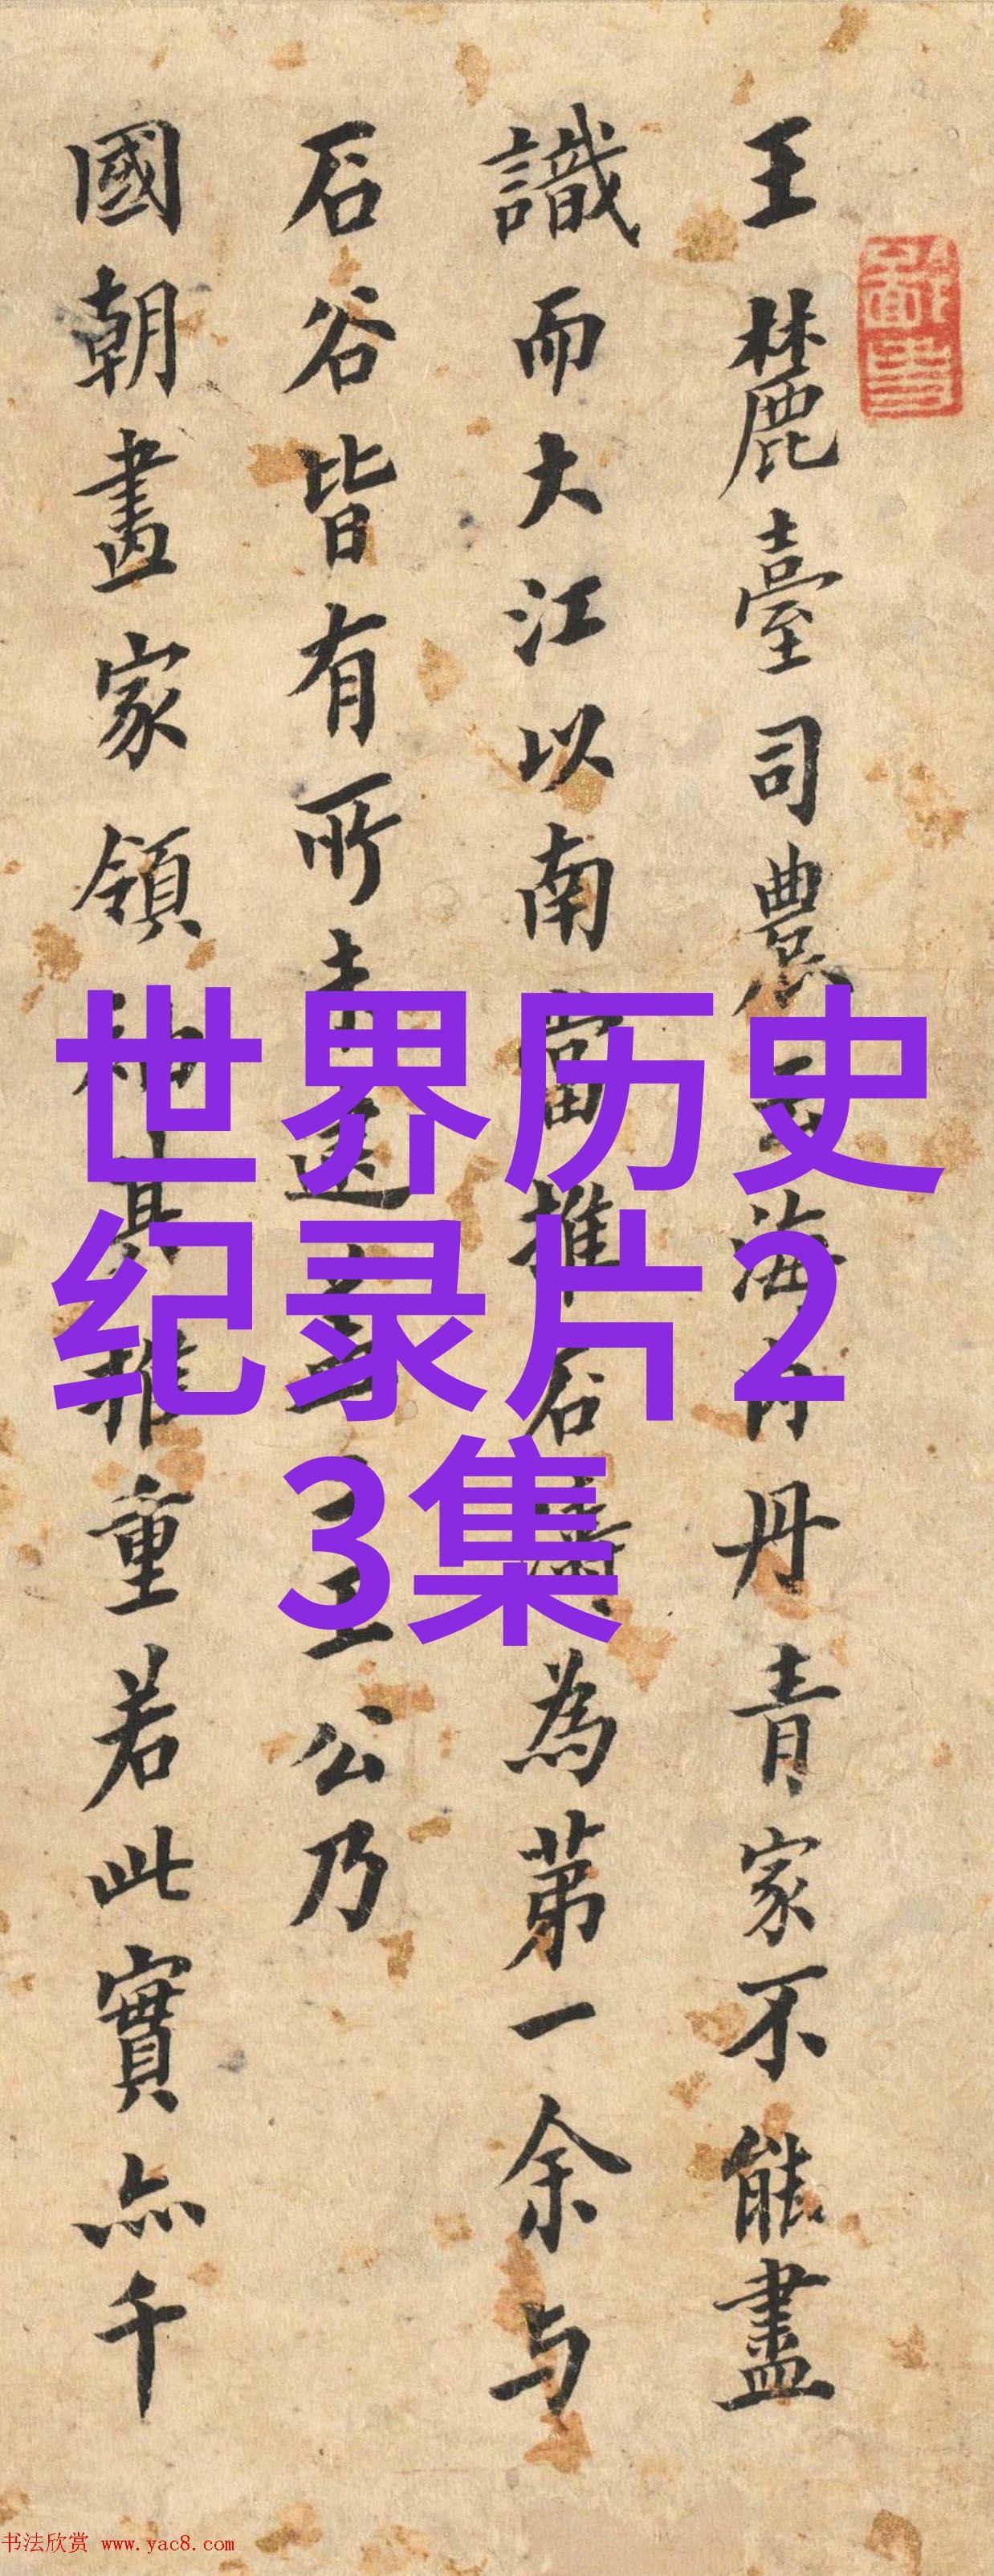 王麓臺司農云海內丹青家不能盡
識而大江以南當推石濤為第一余与
石谷皆有所未逮云云王公乃
國朝畫家領袖其推重若此實亦千
世界历史
纪录片2
3集
书法欣赏 www.yac8.com